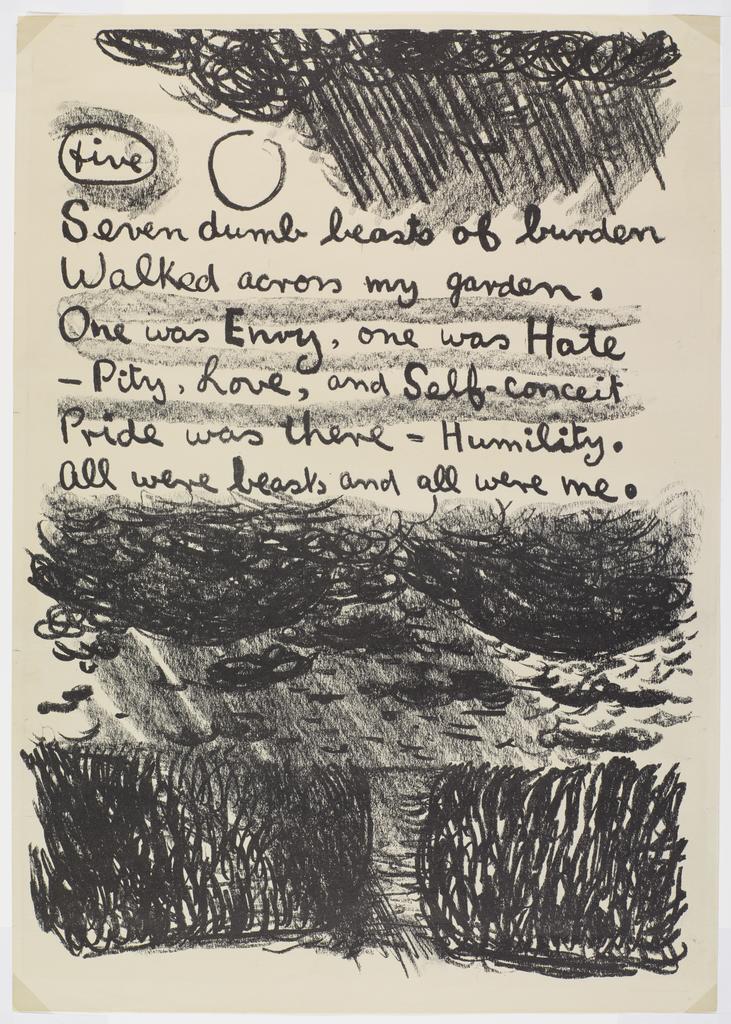 five
Seven dumb beasts of burden
Walked across my garden.
One was Envy, one was Hate
- Pity, Love, and Self-conceit
Pride was there - Humility.
All were beasts and all were me.